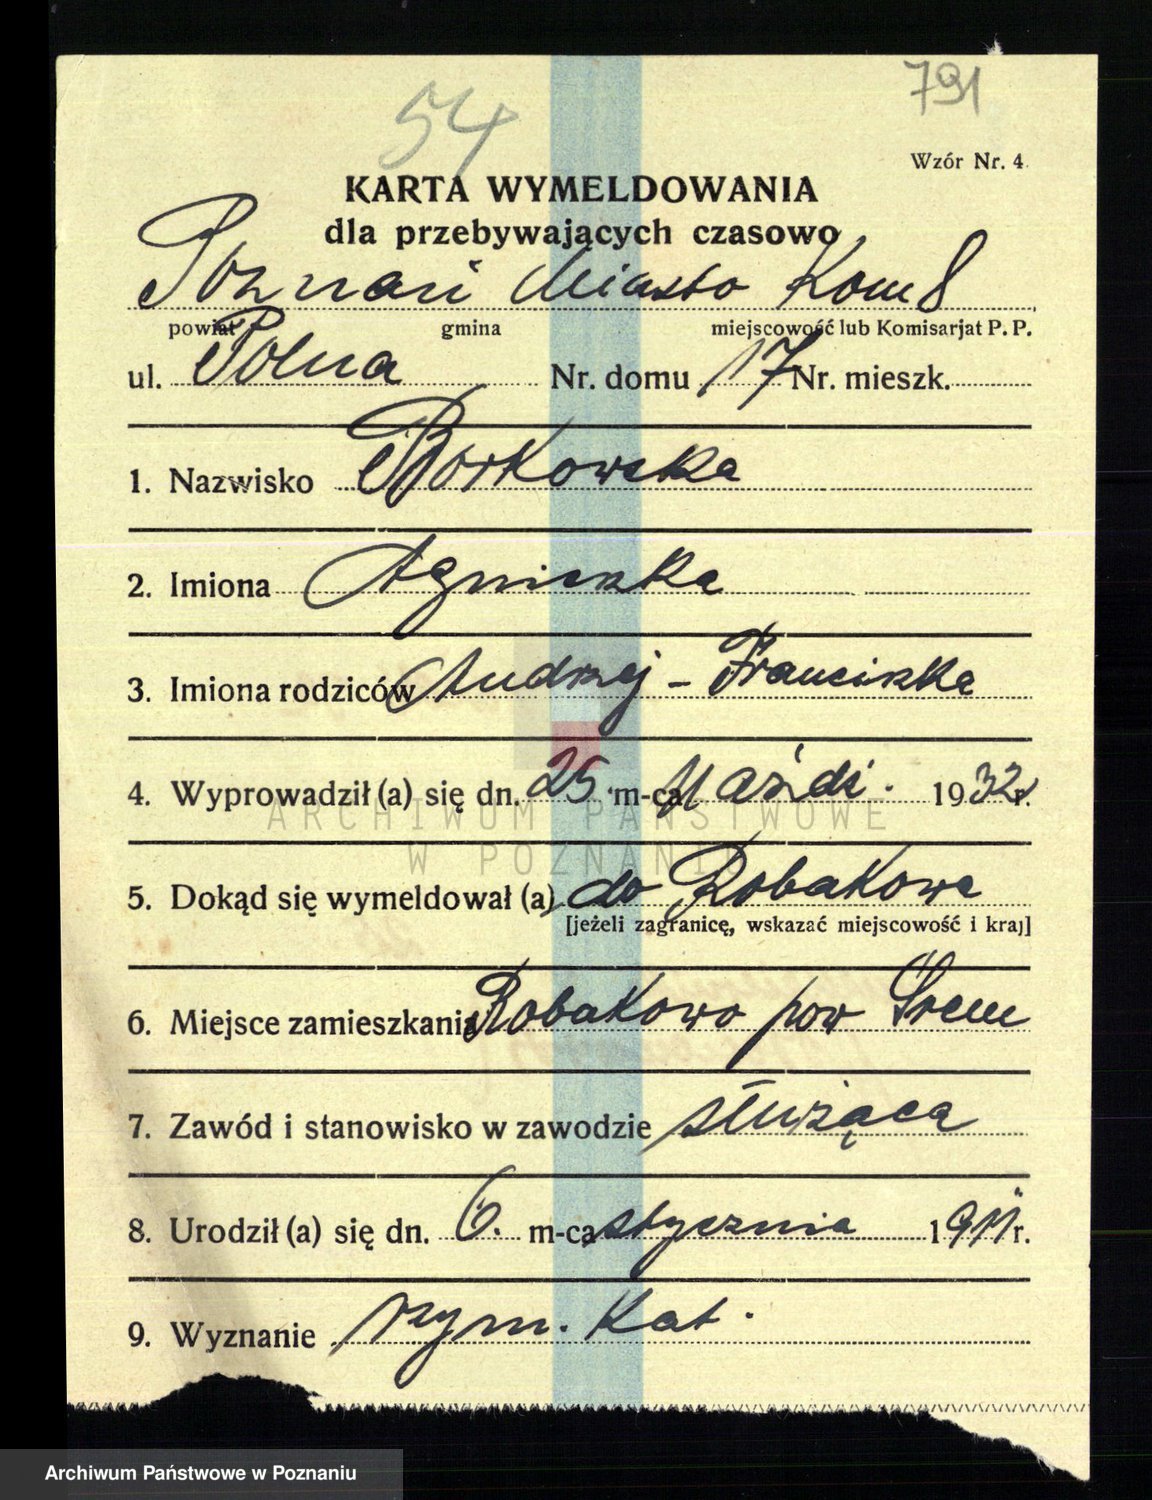 54
791
Wzór Nr. 4
KARTA WYMELDOWANIA
dla przebywających czasowo
Poznań Miasto Kom 8
powiat gmina miejscowość lub Komisarjat P. P.
ul. Polna Nr. domu 17 Nr. mieszk.
1. Nazwisko Borkowska
2. Imiona Agnieszka
3. Imiona rodziców Andrzej - Franciszka
4. Wyprowadził (a) się dn. 25 m-ca Paździ. 1932 r.
ARCHIWUM PAŃSTWOWE
W POZNANIU
5. Dokąd się wymeldował (a) do Robakowa
[jeżeli zagranicę, wskazać miejscowość i kraj]
6. Miejsce zamieszkania Robakowo pow Śrem
7. Zawód i stanowisko w zawodzie służąca
8. Urodził (a) się dn. 6. m-ca stycznia 1911 r.
9. Wyznanie rzym. kat.
Archiwum Państwowe w Poznaniu